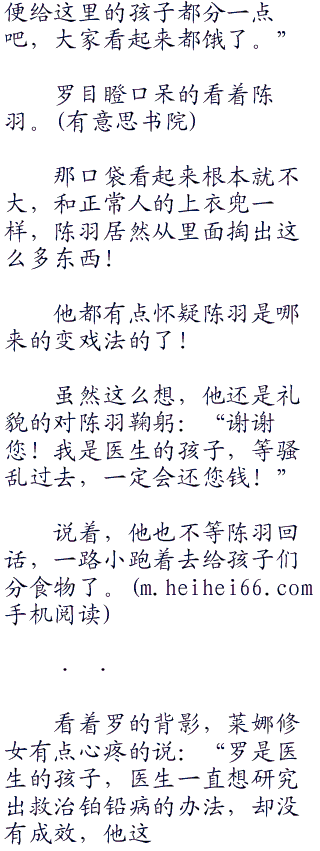 便给这里的孩子都分一点
吧，大家看起来都饿了。”
罗目瞪口呆的看着陈
羽。(有意思书院)
那口袋看起来根本就不
大，和正常人的上衣兜一
样，陈羽居然从里面掏出这
么多东西！
他都有点怀疑陈羽是哪
来的变戏法的了！
虽然这么想，他还是礼
貌的对陈羽鞠躬：“谢谢
您！我是医生的孩子，等骚
乱过去，一定会还您钱！”
说着，他也不等陈羽回
话，一路小跑着去给孩子们
分食物了。(m.heihei66.com
手机阅读)
． ．
看着罗的背影，莱娜修
女有点心疼的说：“罗是医
生的孩子，医生一直想研究
出救治铂铅病的办法，却没
有成效，他这